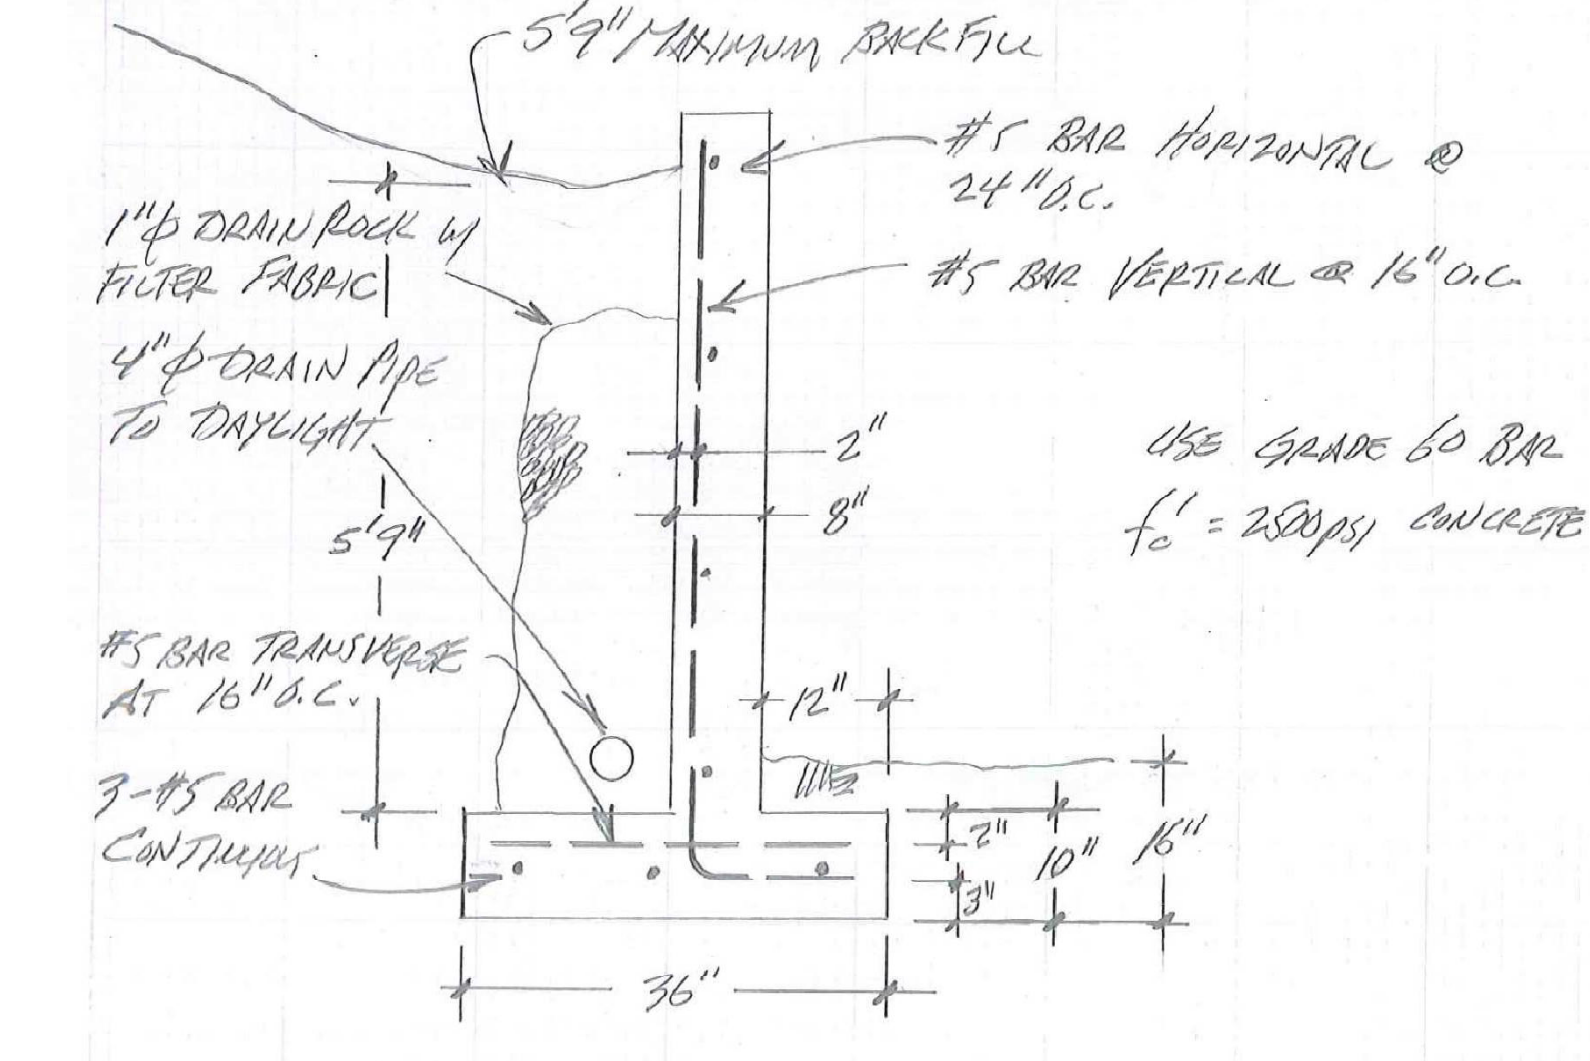 5'9" MAXIMUM BACKFILL
#5 BAR HORIZONTAL @
24" O.C.
1"ϕ DRAIN ROCK W/
FILTER FABRIC
#5 BAR VERTICAL @ 16" O.C.
4"ϕ DRAIN PIPE
TO DAYLIGHT
2"
USE GRADE 60 BAR
8"
fc' = 2500psi CONCRETE
5'9"
#5 BAR TRANSVERSE
AT 16" O.C.
12"
3-#5 BAR
CONTINUOUS
2"
10"
16"
3"
36"